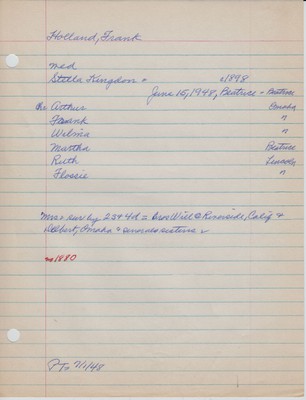 Holland, Frank
med
Stella Kingdon + c1898
June 15, 1948, Beatrice - Beatrice
ch Arthur Omaha
Frank "
Wilma "
Martha Beatrice
Ruth Lincoln
Flossie "
Mrs + sur by 2s+4d = bros Will @ Riverside, Calif +
Delbert, Omaha +
c1880
7/1/48